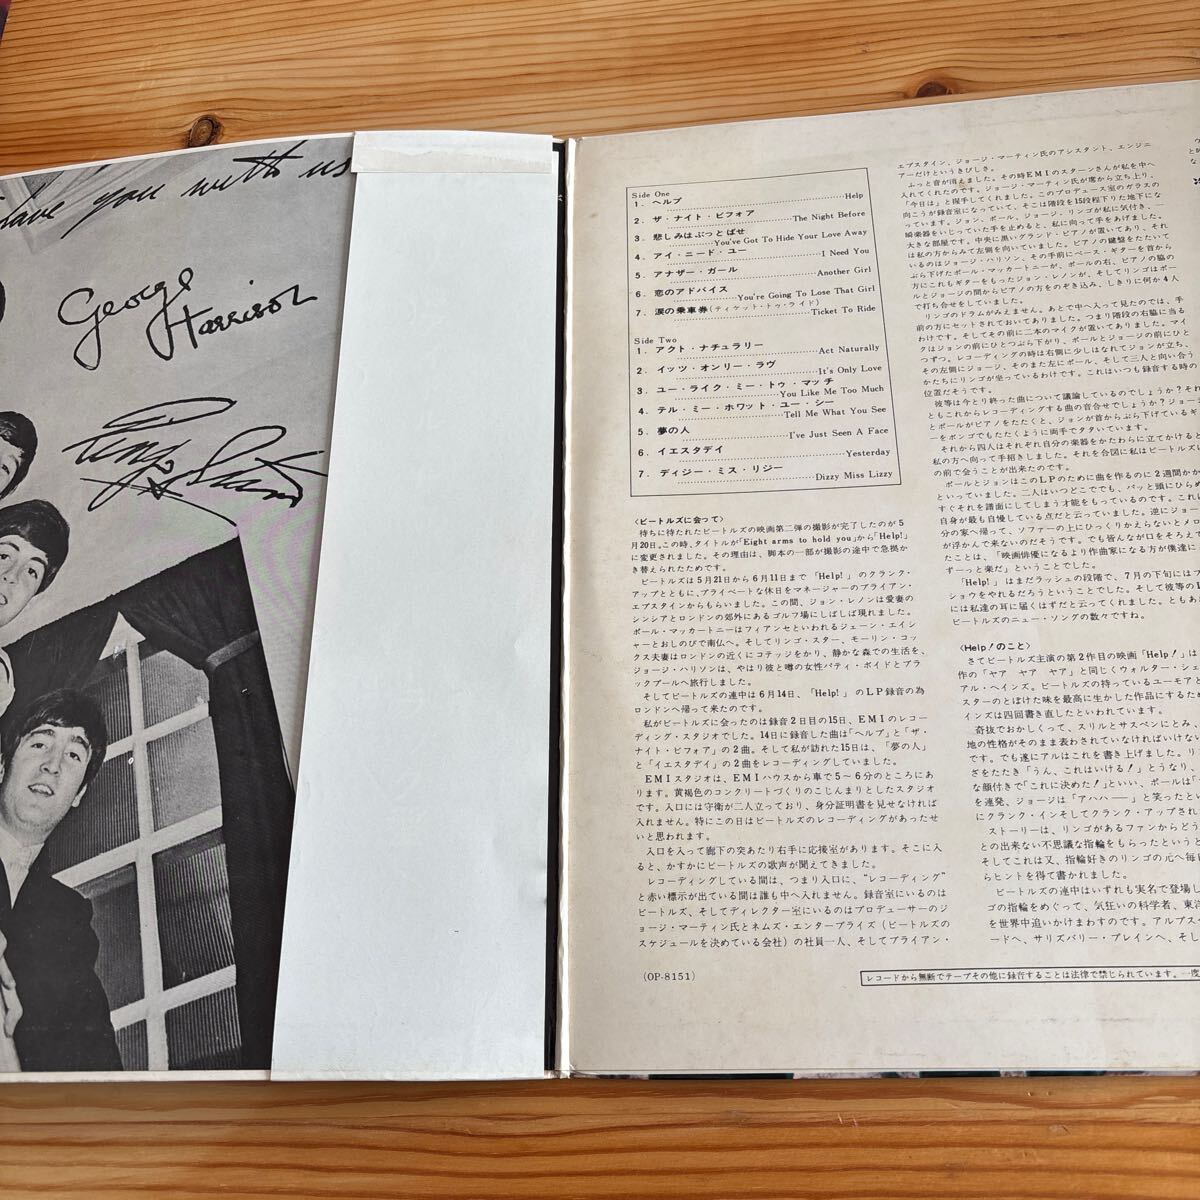 have you with us
George
Harrison
Side One
1. ヘルプ Help
2. ザ・ナイト・ビフォア The Night Before
3. 悲しみはぶっとばせ You've Got To Hide Your Love Away
4. アイ・ニード・ユー I Need You
5. アナザー・ガール Another Girl
6. 恋のアドバイス You're Going To Lose That Girl
7. 涙の乗車券(ティケット・トゥ・ライド) Ticket To Ride
Side Two
1. アクト・ナチュラリー Act Naturally
2. イッツ・オンリー・ラヴ It's Only Love
3. ユー・ライク・ミー・トゥ・マッチ You Like Me Too Much
4. テル・ミー・ホワット・ユー・シー Tell Me What You See
5. 夢の人 I've Just Seen A Face
6. イエスタデイ Yesterday
7. ディジー・ミス・リジー Dizzy Miss Lizzy
〈ビートルズに会って〉
待ちに待たれたビートルズの映画第二弾の撮影が完了したのが5
月20日。この時、タイトルが「Eight arms to hold you」から「Help!」
に変更されました。その理由は、脚本の一部が撮影の途中で急拠か
き替えられたためです。
ビートルズは5月21日から6月11日まで「Help!」のクランク・
アップとともに、プライベートな休日をマネージャーのブライアン・
エプスタインからもらいました。この間、ジョン・レノンは愛妻の
シンシアとロンドンの郊外にあるゴルフ場にしばしば現れました。
ポール・マッカートニーはフィアンセといわれるジェーン・エイシ
ャーとおしのびで南仏へ。そしてリンゴ・スター、モーリン・コッ
クス夫妻はロンドンの近くにコテッジをかり、静かな森での生活を、
ジョージ・ハリソンは、やはり彼と噂の女性パティ・ボイドとブラ
ックプールへ旅行しました。
そしてビートルズの連中は6月14日、「Help!」のLP録音の為
ロンドンへ帰って来たのです。
私がビートルズに会ったのは録音2日目の15日、EMIのレコー
ディング・スタジオでした。14日に録音した曲は「ヘルプ」と「ザ・
ナイト・ビフォア」の2曲。そして私が訪れた15日は、「夢の人」
と「イエスタデイ」の2曲をレコーディングしていました。
EMIスタジオは、EMIハウスから車で5~6分のところにあ
ります。黄褐色のコンクリートづくりのこじんまりとしたスタジオ
です。入口には守衛が二人立っており、身分証明書を見せなければ
入れません。特にこの日はビートルズのレコーディングがあったせ
いと思われます。
入口を入って廊下の突あたり右手に応接室があります。そこに入
ると、かすかにビートルズの歌声が聞えてきました。
レコーディングしている間は、つまり入口に、“レコーディング”
と赤い標示が出ている間は誰も中へ入れません。録音室にいるのは
ビートルズ、そしてディレクター室にいるのはプロデューサーのジ
ョージ・マーティン氏とネムズ・エンタープライズ(ビートルズの
スケジュールを決めている会社)の社員一人、そしてブライアン・
(OP-8151)
エプスタイン、ジョージ・マーティン氏のアシスタント、エンジニ
アーだけというきびしさ。
ふっと音が消えました。その時EMIのスターンさんが私を中へ
入れてくれたのです。ジョージ・マーティン氏が席から立ち上り、
「今日は」と握手してくれました。このプロデュース室のガラスの
向こうが録音室になっていて、そこは階段を15段程下りた地下にな
っています。ジョン、ポール、ジョージ、リンゴが私に気付き、一
瞬楽器をいじっていた手を止めると、私に向って手をあげました。
大きな部屋です。中央に黒いグランド・ピアノが置いてあり、それ
は私の方からみて左側を向いていました。ピアノの鍵盤をたたいて
いるのはジョージ・ハリソン、その手前にベース・ギターを首から
ぶら下げたポール・マッカートニーが、ポールの右、ピアノの脇の
方にこれもギターをもったジョン・レノンが、そしてリンゴはポー
ルとジョージの間からピアノの方をのぞき込み、しきりに何か4人
で打ち合せをしていました。
リンゴのドラムがみえません。あとで中へ入って見たのでは、手
前の方にセットされておいてありました。つまり階段の右脇に当る
わけです。そしてその前に二本のマイクが置いてありました。マイ
クはジョンの前にひとつぶら下がり、ポールとジョージの前にひと
つずつ。レコーディングの時は右側に少しはなれてジョンが立ち、
その左側にジョージ、そのまた左にポール、そして三人と向い合う
かたちにリンゴが坐っているわけです。これはいつも録音する時の
位置だそうです。
彼等は今とり終った曲について議論しているのでしょうか?それ
ともこれからレコーディングする曲の音合せでしょうか?ジョージ
とポールがピアノをたたくと、ジョンが首からぶら下げているギタ
ーをボンゴでもたたくように両手でタタいています。
それから四人はそれぞれ自分の楽器をかたわらに立てかけると
私の方へ向って手招きしました。それを合図に私はビートルズに
の前で会うことが出来たのです。
ポールとジョンはこのLPのために曲を作るのに2週間かか
といっていました。二人はいつどこででも、パッと頭にひらめ
すぐそれを譜面にしてしまう才能をもっているのです。これに
自身が最も自慢している点だと云っていました。逆にジョー
分の家へ帰って、ソファーの上にひっくりかえらないとメロ
が浮かんで来ないのだそうです。でも皆んなが口をそろえて
たことは、「映画俳優になるより作曲家になる方が僕達に
ずーっと楽だ」ということでした。
「Help!」はまだラッシュの段階で、7月の下旬にはプ
ショウをやれるだろうということでした。そして彼等のL
には私達の耳に届くはずだと云ってくれました。ともあ
ビートルズのニュー・ソングの数々ですね。
〈Help!のこと〉
さてビートルズ主演の第2作目の映画「Help!」は
作の「ヤア ヤア ヤア」と同じくウォルター・シェ
アル・ヘインズ。ビートルズの持っているユーモアと
スターのとぼけた味を最高に生かした作品にするため
インズは四回書き直したといわれています。
奇抜でおかしくって、スリルとサスペンにとみ、
地の性格がそのまま表わされていなければいけない
です。でも遂にアルはこれを書き上げました。リ
ざをたたき「うん、これはいける!」とうなり、
な顔付きで「これに決めた!」といい、ポールは「
を連発、ジョージは「アハハ――」と笑ったとい
にクランク・インそしてクランク・アップされ
ストーリーは、リンゴがあるファンからどう
との出来ない不思議な指輪をもらったというと
そしてこれは又、指輪好きのリンゴの元へ毎
らヒントを得て書かれました。
ビートルズの連中はいずれも実名で登場し
ゴの指輪をめぐって、気狂いの科学者、東洋
を世界中追いかけまわすのです。アルプス
ードへ、サリズバリー・プレインへ、そし
レコードから無断でテープその他に録音することは法律で禁じられています。